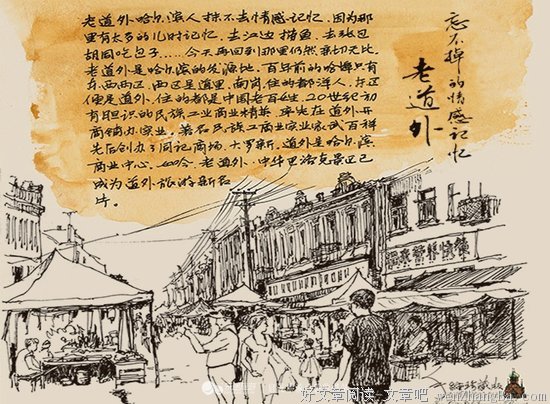 忘不掉的情感记忆
老道外
老道外哈尔滨人抹不去情感记忆．因为那
里有太多的儿时记忆．去江边捕鱼．去张包
胡同吃包子……今天再回到那里仍然亲切无比．
老道外是哈尔滨的发源地．百年前的哈埠只有
东西两区．西区是道里．南岗．住的都洋人．东区
便是道外．住的都是中国老百姓．20世纪初
有胆识的民族工业商业精英．率先在道外开
商铺办实业．著名民族工商业实业家武百祥
先后创办了同记商场．大罗新．道外是哈尔滨
商业中心．如今．老道外．中华巴洛克景区已
成为道外旅游新名
片．
好文章阅读 文章吧 wenzhangba.com